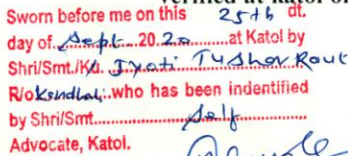 verified at katol o
Sworn before me on this 25th dt.
day of Sept 2020 at Katol by
Shri/Smt./Kd. Jyoti Tushar Raut
R/o Kondhali who has been indentified
by Shri/Smt. Self
Advocate, Katol.